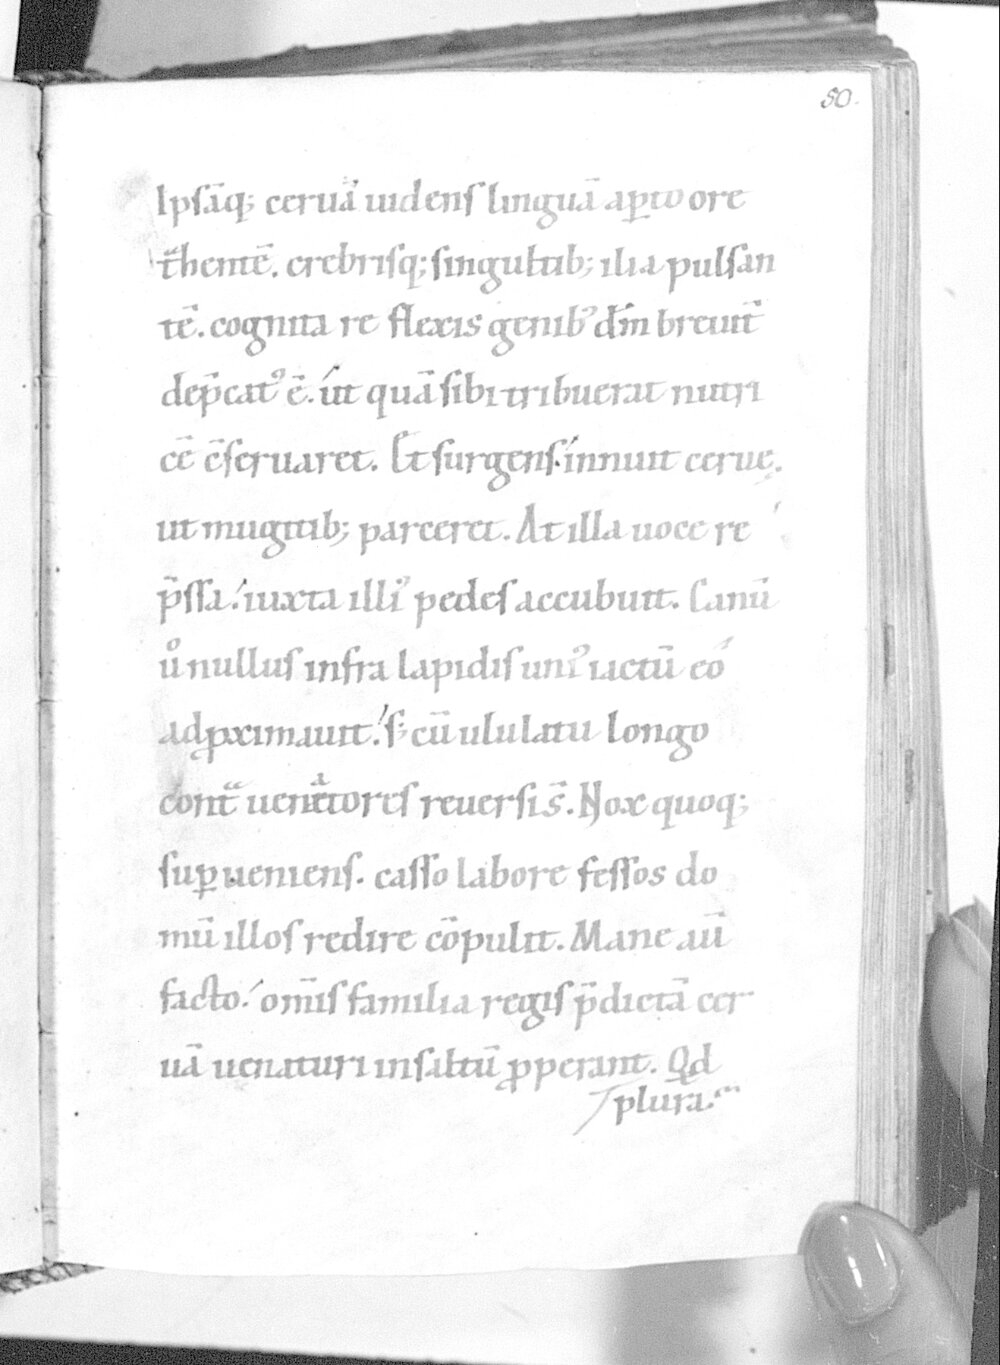 50.
Ipsāq; ceruā uidens linguā aꝑto ore
t̄hentē. crebrisq; singultib; ilia pulsan
tē. cognita re flexis genibꝰ dn̄m breuit̄
dep̄catꝰ ē. ut quā sibi tribuerat nutri
cē c̄seruaret. Et surgens innuit cerue.
ut mugitib; parceret. At illa uoce re
p̄ssa. iuxta illiꝰ pedes accubuit. Canū
ů nullus infra lapidis uniꝰ iactū eo
adꝓximauit. s; cū ululatu longo
cont̄ uenatores reuersi s̄. Nox quoq;
suꝑueniens. casso labore fessos do
mū illos redire cōpulit. Mane aū
facto. om̄is familia regis p̄dictā cer
uā uenaturi in saltū ꝓperant. Qd
plura.